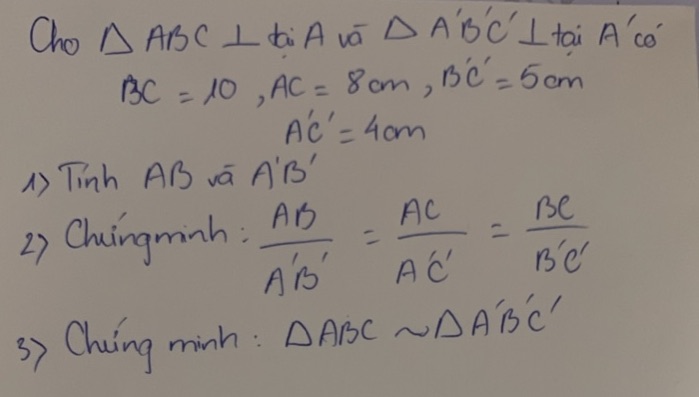 Cho Δ ABC ⊥ tại A và Δ A'B'C' ⊥ tại A' có
BC = 10, AC = 8cm, B'C' = 5cm
A'C' = 4cm
1) Tính AB và A'B'
2) Chứng minh: AB/A'B' = AC/A'C' = BC/B'C'
3) Chứng minh: ΔABC ~ ΔA'B'C'